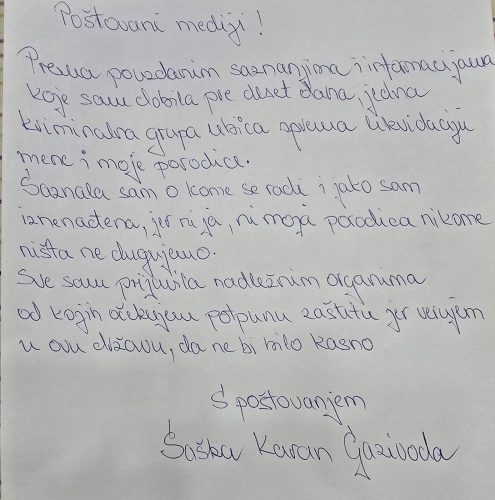 Poštovani mediji !
Prema pouzdanim saznanjima i informacijama
koje sam dobila pre deset dana, jedna
kriminalna grupa ubica sprema likvidaciju
mene i moje porodice.
Saznala sam o kome se radi i jako sam
iznenađena, jer ni ja, ni moja porodica nikome
ništa ne dugujemo.
Sve sam prijavila nadležnim organima
od kojih očekujem potpunu zaštitu jer verujem
u ovu državu, da ne bi bilo kasno
S poštovanjem
Soška Karan Gazivoda